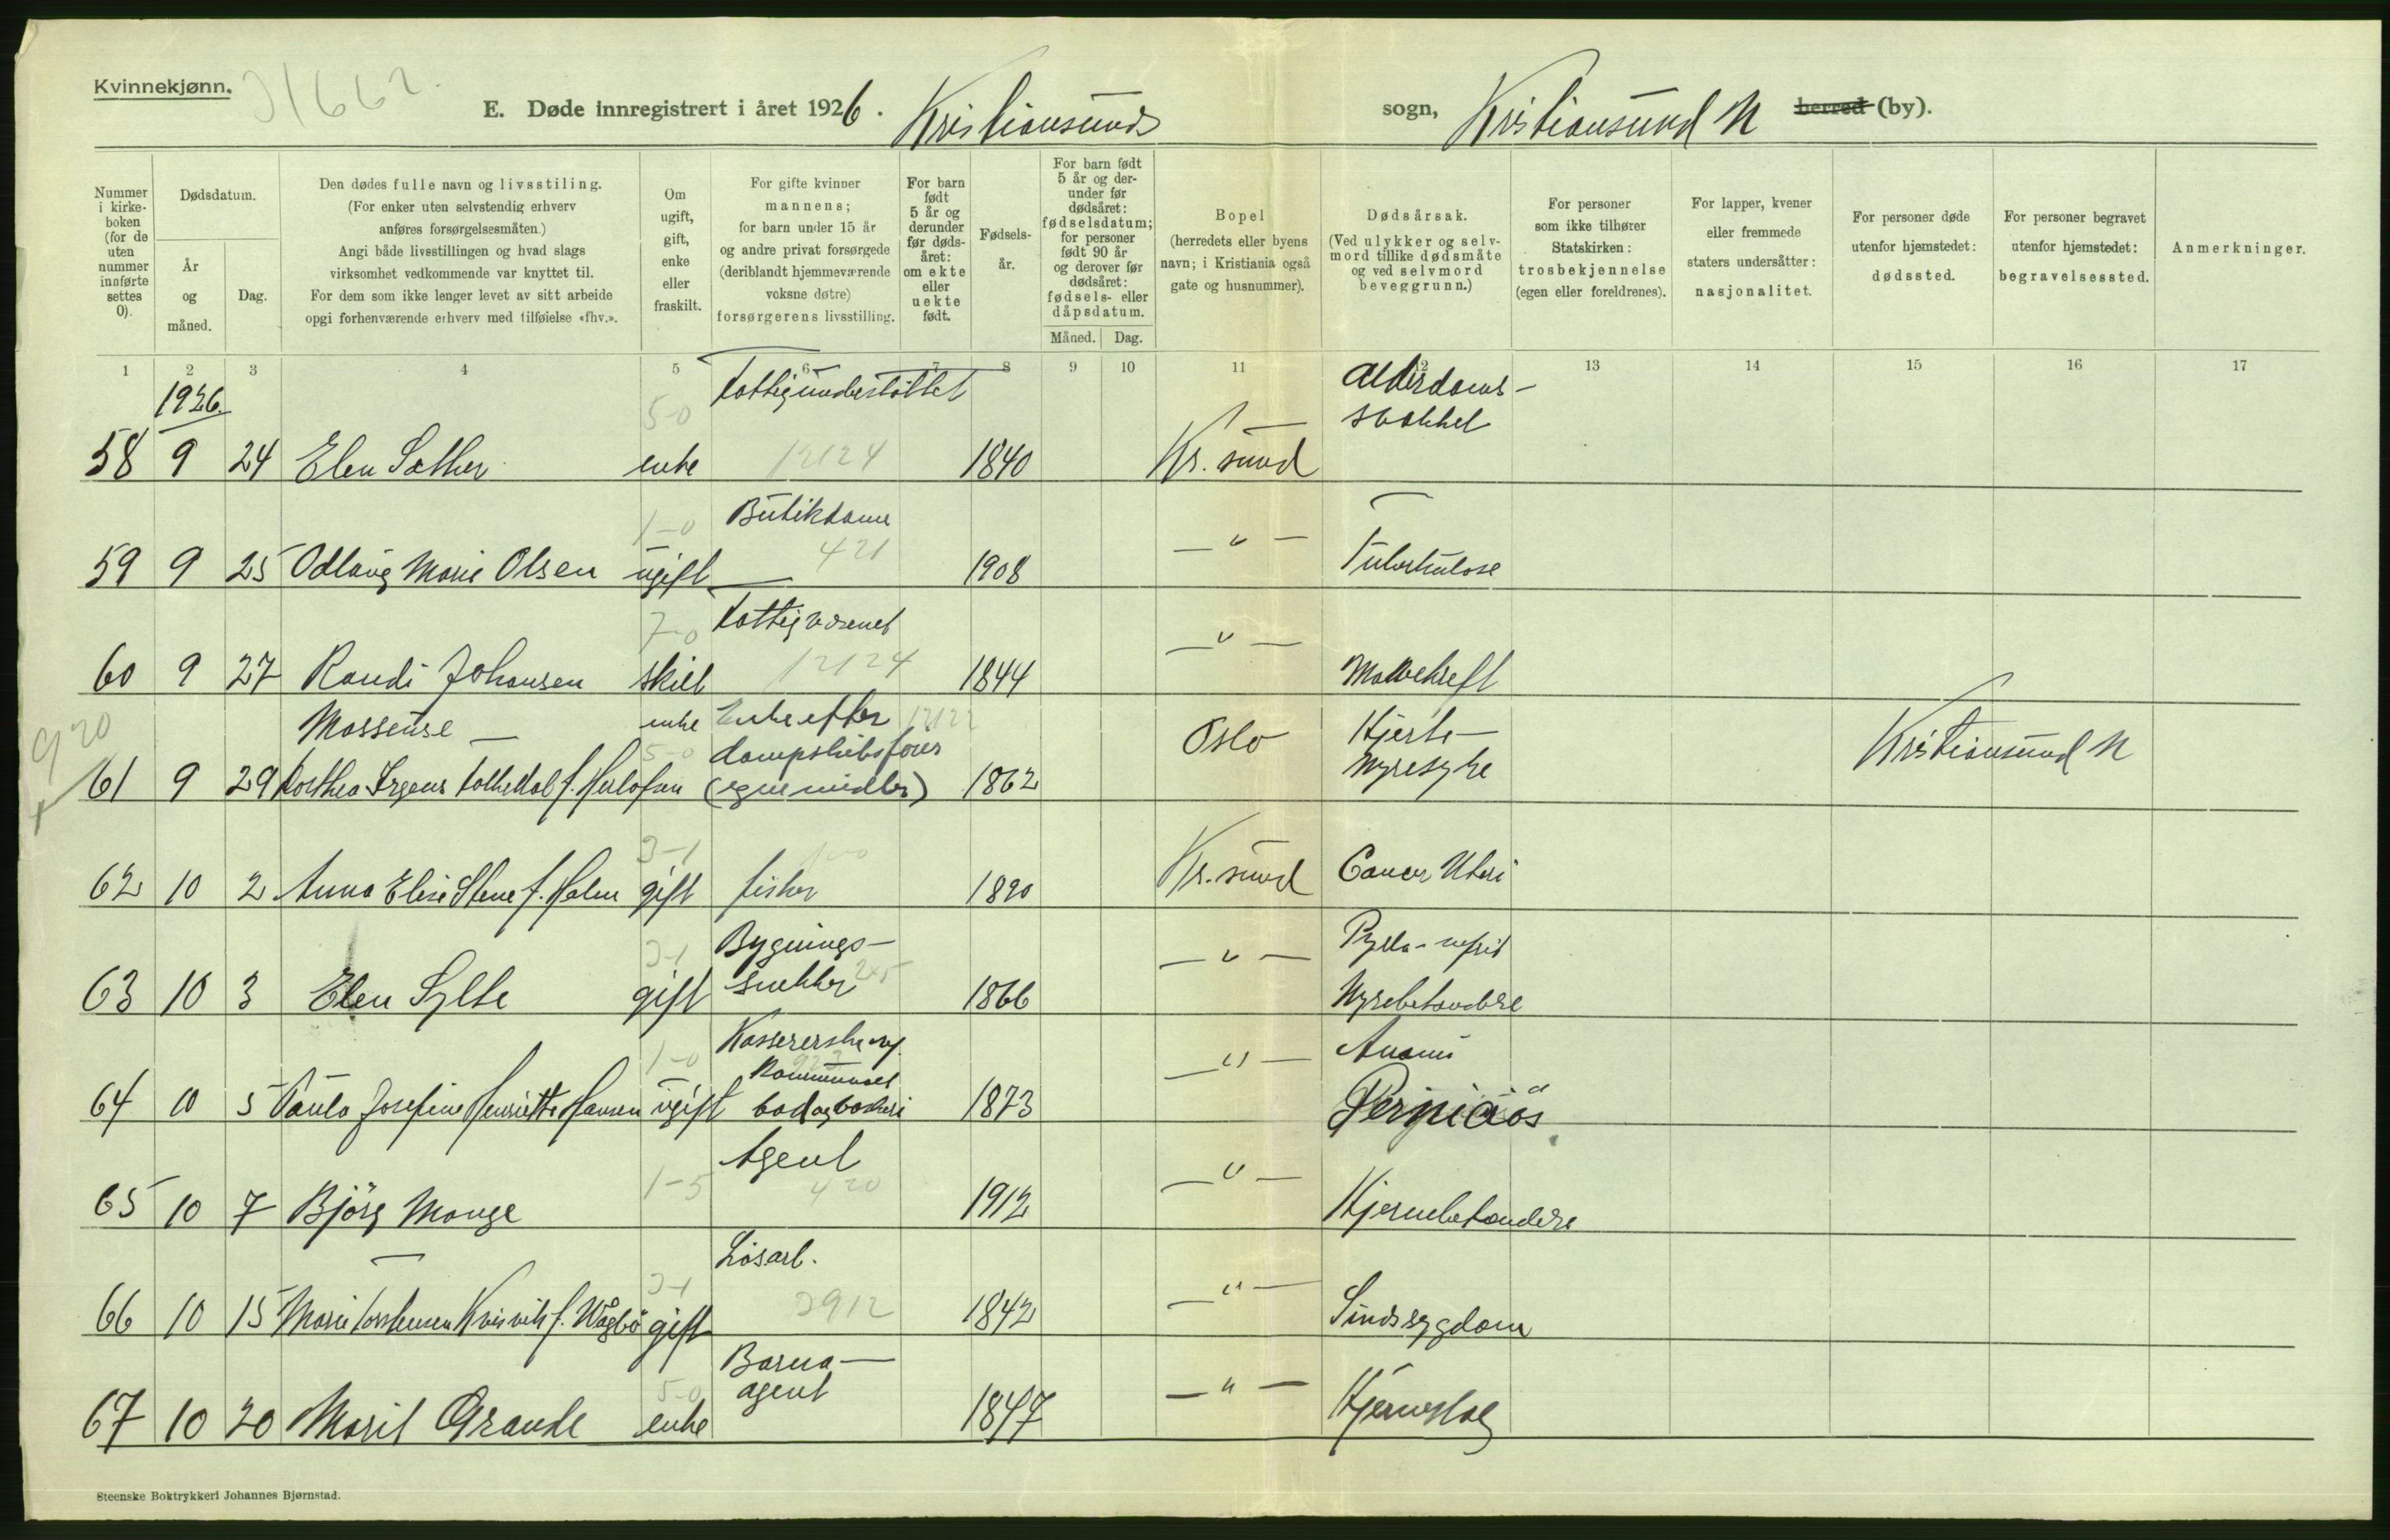 Kvinnekjønn.
E. Døde innregistrert i året 1926. Kristiansunds sogn, Kristiansund N herred (by).
Nummer i kirkeboken (for de uten nummer innførte settes 0).
Dødsdatum.
År og måned.
Dag.
Den dødes fulle navn og livsstiling.
(For enker uten selvstendig erhverv
anføres forsørgelsesmåten.)
Angi både livsstillingen og hvad slags
virksomhet vedkommende var knyttet til.
For dem som ikke lenger levet av sitt arbeide
opgi forhenværende erhverv med tilføielse «fhv.».
Om ugift, gift, enke eller fraskilt.
For gifte kvinner
mannens;
for barn under 15 år
og andre privat forsørgede
(deriblandt hjemmeværende
voksne døtre)
forsørgerens livsstilling.
For barn født 5 år og derunder før dødsåret: om ekte eller uekte født.
Fødselsår.
For barn født 5 år og derunder før dødsåret: fødselsdatum; for personer født 90 år og derover før dødsåret: fødsels- eller dåpsdatum.
Måned. Dag.
Bopel
(herredets eller byens
navn; i Kristiania også
gate og husnummer).
Dødsårsak.
(Ved ulykker og selv-
mord tillike dødsmåte
og ved selvmord
beveggrunn.)
For personer
som ikke tilhører
Statskirken:
trosbekjennelse
(egen eller foreldrenes).
For lapper, kvener
eller fremmede
staters undersåtter:
nasjonalitet.
For personer døde
utenfor hjemstedet:
dødssted.
For personer begravet
utenfor hjemstedet:
begravelsessted.
Anmerkninger.
1 2 3 4 5 6 7 8 9 10 11 12 13 14 15 16 17
1926.
Fattigunderstøttet
Alderdoms-
svakhet
5-0
58 9 24 Elen Sæther enke 12124 1840 Kr.sund
1-0 Butikdame
421
59 9 25 Odlaug Marie Olsen ugift 1908 — " — Tuberkulose
7-0 Fattigvæsenet
60 9 27 Randi Johansen skilt 12124 1844 — " — Mavekreft
Massøuse enke Enke efter 12122
dampskibsfører
Oslo Hjerte-
Nyresyke
Kristiansund N
920
61 9 29 Dorthea Irgens 5-0 (egne midler) 1862
3-1
62 10 2 Anna Elise Stene f. Holm gift fisker 1890 Kr.sund Cancer Uteri
3-1 Bygnings-
snekker 245
63 10 3 Elen Sylte gift 1866 — " — Pyelo-nefrit
Nyrebetændelse
1-0 Kassererske v.
Kommunalt
bad og vaskeri
64 10 5 Paula Josefine Henriette Hansen ugift 1873 — " — Anæmi
Perniciøs
1-5 Agent
420
65 10 7 Bjørg Monge 1912 — " — Hjernebetændelse
Løsarb.
3-1 2912
66 10 15 Marie Kvisvik f. Wågbø gift 1842 — " — Sindssygdom
Barna-
agent
5-0
67 10 20 Marit Grande enke 1847 — " — Hjerneslag
Steenske Boktrykkeri Johannes Bjørnstad.